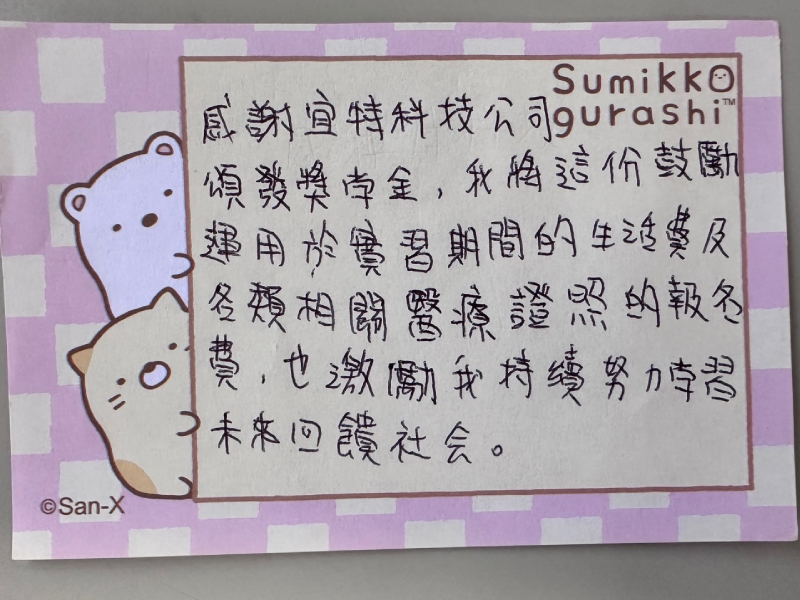 Sumikko
gurashi™
感謝宜特科技公司
頒發獎学金，我將這份鼓勵
運用於實習期間的生活費及
各類相關醫療證照的報名
費，也激勵我持續努力学習
未來回饋社会。
©San-X